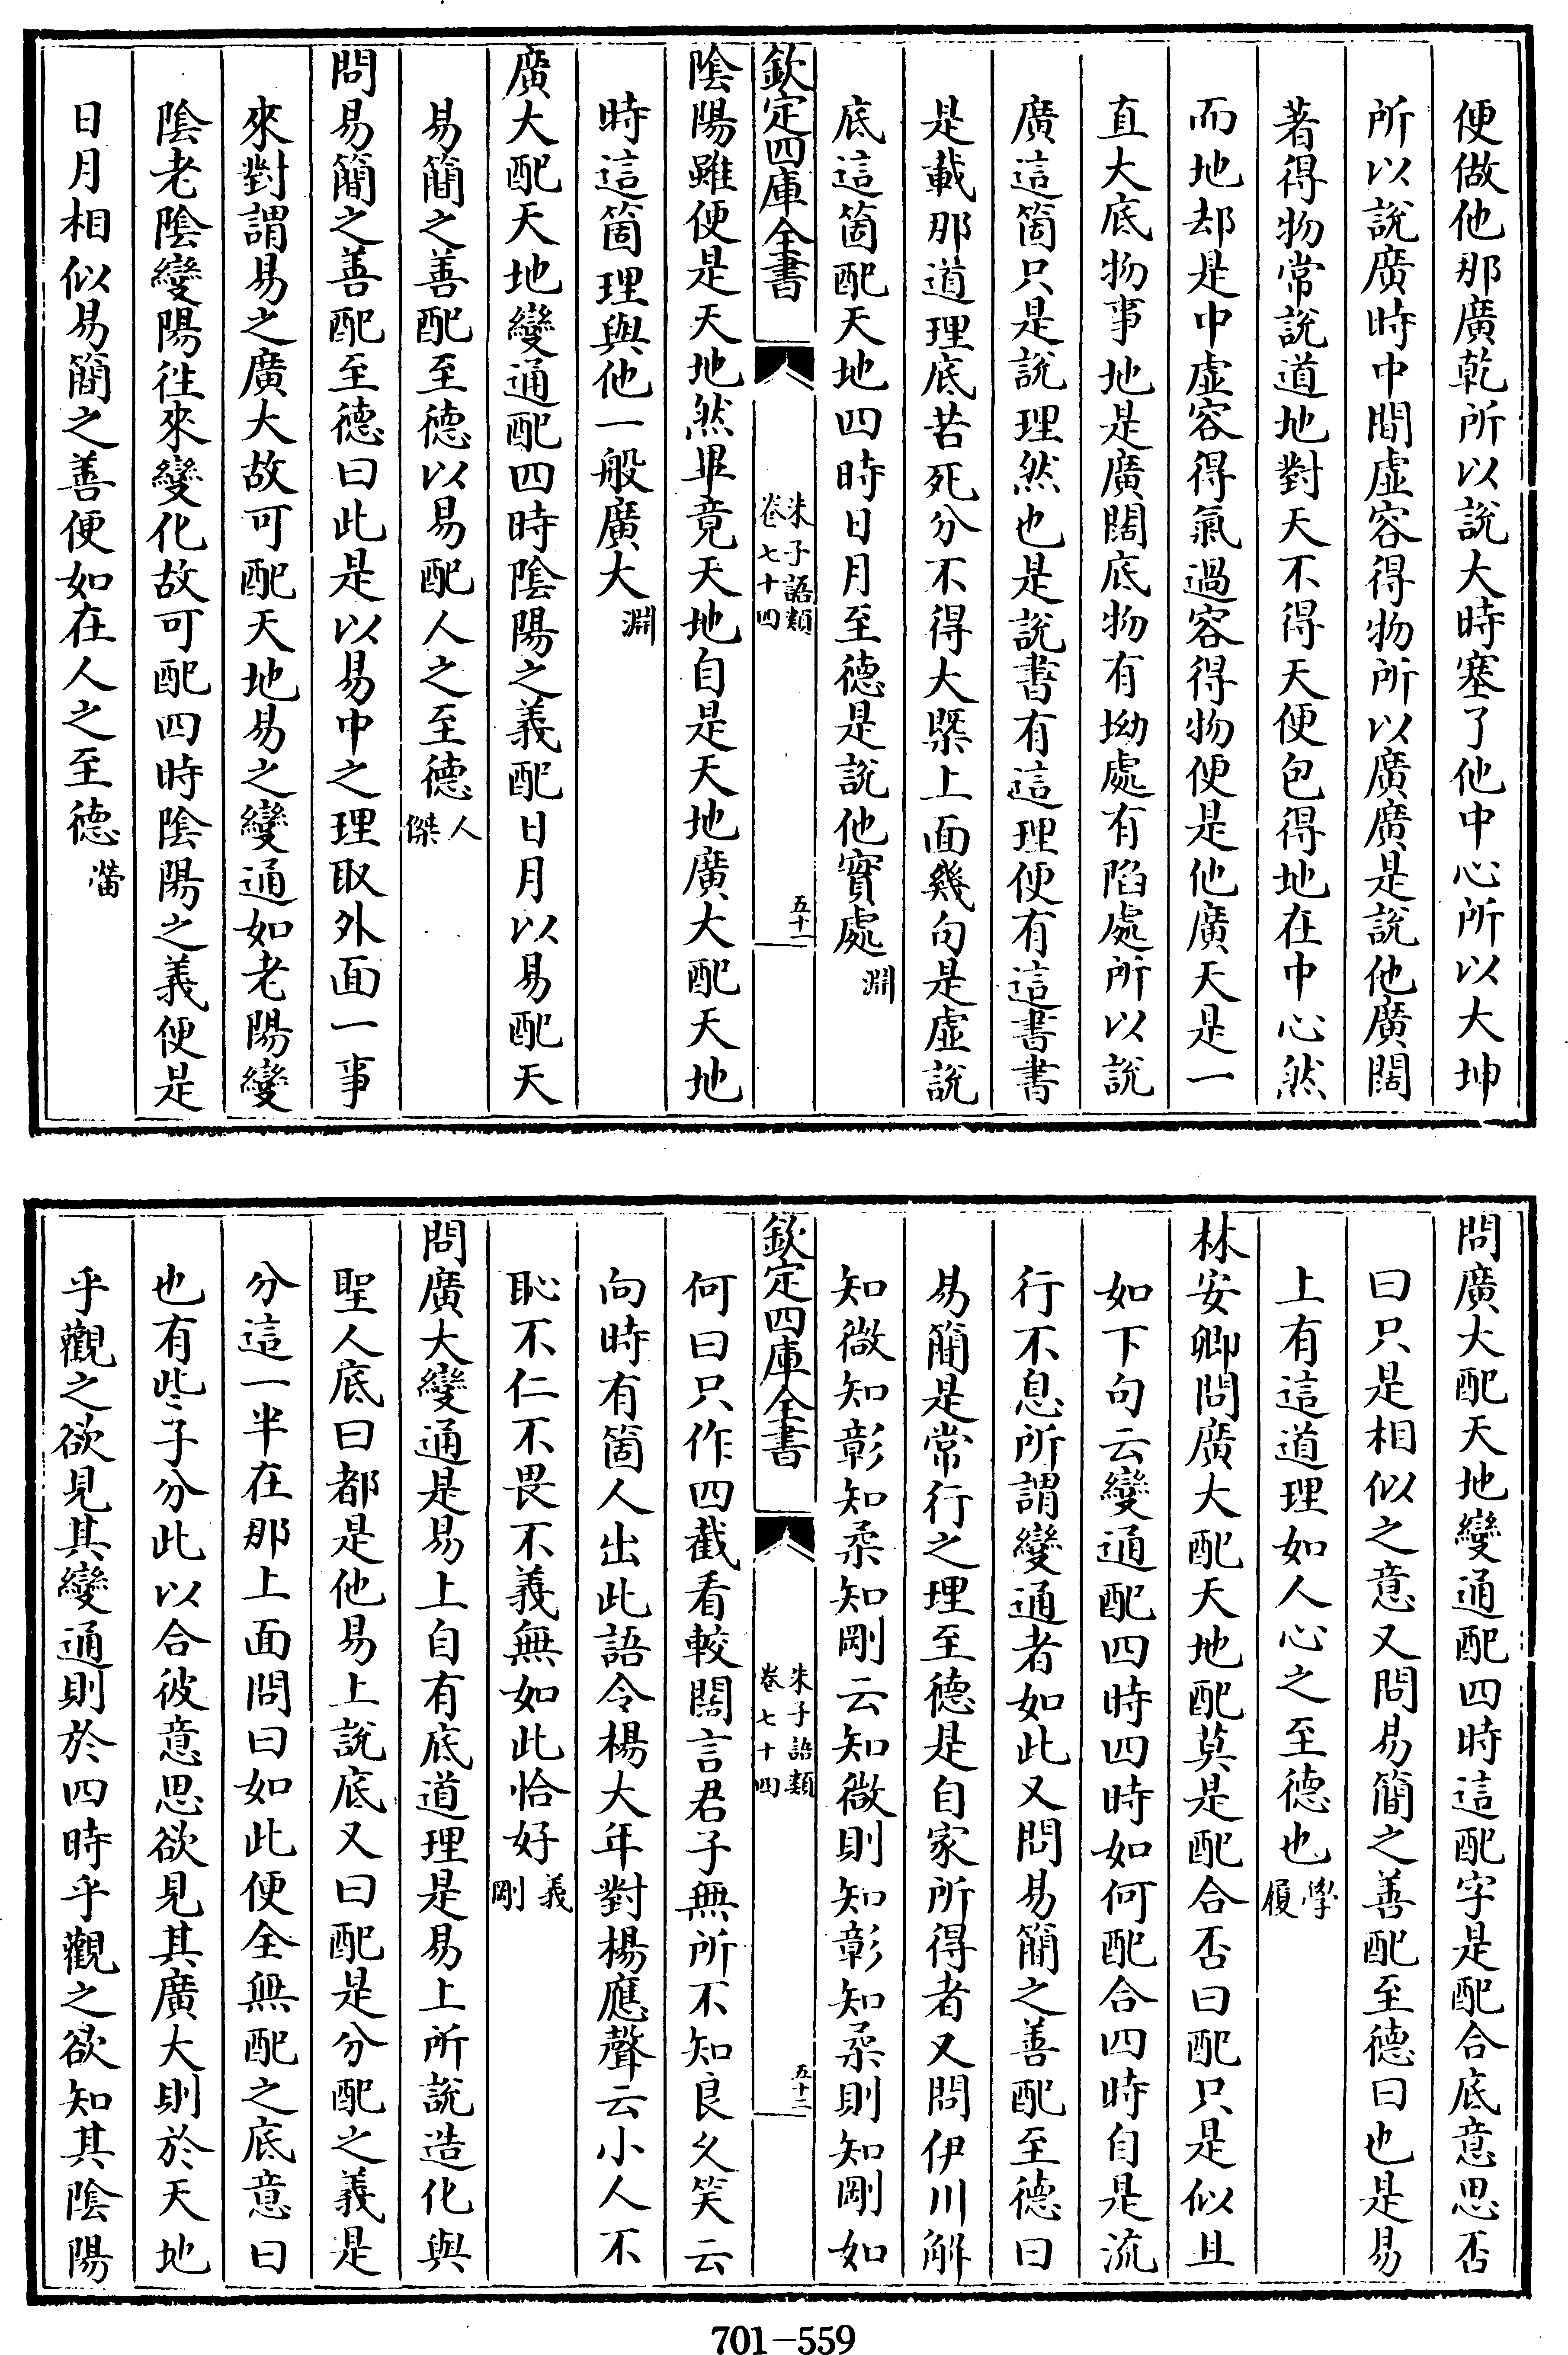 便做他那廣乾所以說大時塞了他中心所以大坤
所以說廣時中間虛容得物所以廣廣是說他廣闊
著得物常說道地對天不得天便包得地在中心然
而地却是中虛容得氣過容得物便是他廣天是一
直大底物事地是廣闊底物有坳處有陷處所以說
廣這箇只是說理然也是說書有這理便有這書書
是載那道理底若死分不得大槩上面幾句是虛說
底這箇配天地四時日月至德是說他實處淵
欽定四庫全書
朱子語類
卷七十四
五十一
陰陽雖便是天地然畢竟天地自是天地廣大配天地
時這箇理與他一般廣大淵
廣大配天地變通配四時陰陽之義配日月以易配天
易簡之善配至德以易配人之至德人傑
問易簡之善配至德曰此是以易中之理取外面一事
來對謂易之廣大故可配天地易之變通如老陽變
陰老陰變陽往來變化故可配四時陰陽之義便是
日月相似易簡之善便如在人之至德㽦
問廣大配天地變通配四時這配字是配合底意思否
曰只是相似之意又問易簡之善配至德曰也是易
上有這道理如人心之至德也學履
林安卿問廣大配天地配莫是配合否曰配只是似且
如下句云變通配四時四時如何配合四時自是流
行不息所謂變通者如此又問易簡之善配至德曰
易簡是常行之理至德是自家所得者又問伊川解
知微知彰知柔知剛云知微則知彰知柔則知剛如
欽定四庫全書
朱子語類
卷七十四
五十二
何曰只作四截看較闊言君子無所不知良久笑云
向時有箇人出此語令楊大年對楊應聲云小人不
恥不仁不畏不義無如此恰好義剛
問廣大變通是易上自有底道理是易上所說造化與
聖人底曰都是他易上說底又曰配是分配之義是
分這一半在那上面問曰如此便全無配之底意曰
也有些子分此以合彼意思欲見其廣大則於天地
乎觀之欲見其變通則於四時乎觀之欲知其陰陽
701-559